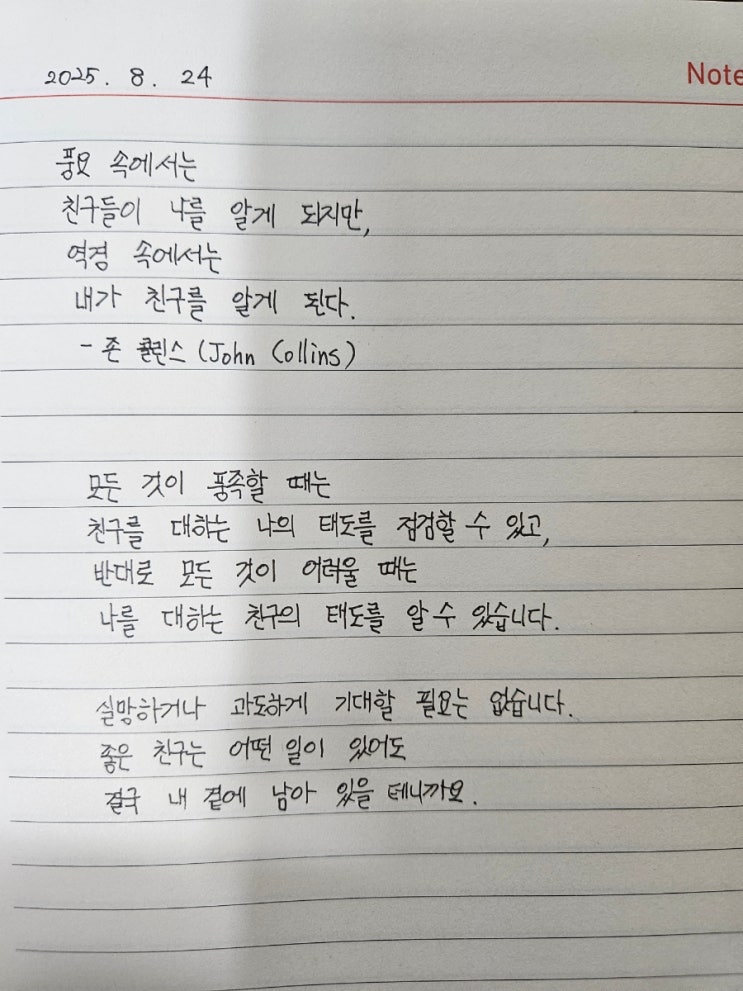 2025. 8. 24
Note
풍요 속에서는
친구들이 나를 알게 되지만,
역경 속에서는
내가 친구를 알게 된다.
- 존 콜린스 (John Collins)
모든 것이 풍족할 때는
친구를 대하는 나의 태도를 점검할 수 있고,
반대로 모든 것이 어려울 때는
나를 대하는 친구의 태도를 알 수 있습니다.
실망하거나 과도하게 기대할 필요는 없습니다.
좋은 친구는 어떤 일이 있어도
결국 내 곁에 남아 있을 테니까요.